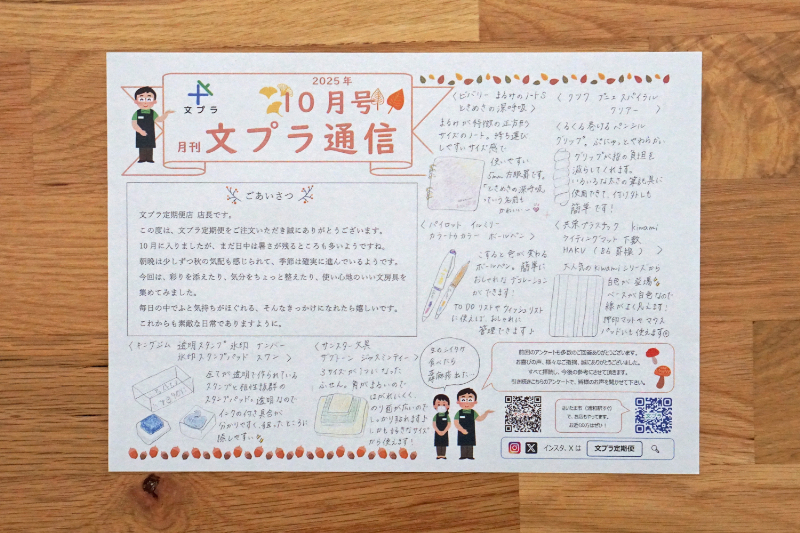 2025年
10月号
文プラ
月刊 文プラ通信
ごあいさつ
文プラ定期便店 店長です。
この度は、文プラ定期便をご注文いただき誠にありがとうございます。
10月に入りましたが、まだ日中は暑さが残るところも多いようですね。
朝晩は少しずつ秋の気配も感じられて、季節は確実に進んでいるようです。
今回は、彩りを添えたり、気分をちょっと整えたり、使い心地のいい文房具を
集めてみました。
毎日の中でふと気持ちがほぐれる、そんなきっかけになれたら嬉しいです。
これからも素敵な日常でありますように。
〈ビバリー まるみのノートS
ときめきの深呼吸〉
まるみが特徴の正方形
サイズのノート。持ち運び
しやすいサイズ感で
使いやすい
5mm方眼罫です。
"ときめきの深呼吸"
という名前も
かわいい
〈クツワ プニュスパイラル
クリアー〉
くるくる巻けるペンシル
グリップ。ぷにゅっとやわらかい
グリップが指の負担を
減らしてくれます。
いろいろな太さの筆記具に
使用できて、付け外しも
簡単です!
〈パイロット イルミリー
カラーツーカラー ボールペン〉
こすると色が変わる
ボールペン。簡単に
おしゃれなグラデーション
ができます!
TO DOリストやウィッシュリスト
に使えば、おしゃれに
管理できます♪
〈共栄プラスチック kinami
ライティングマット下敷
HAKU(B6罫線)〉
大人気のkinamiシリーズから
白色が登場
ベースが白色なので
線がよく見えます!
押印マットやマウス
パッドにも使えます
〈キングジム 透明スタンプ 氷印 ナンバー
氷印スタンプパッド スワン〉
全てが透明で作られている
スタンプと相性抜群の
スタンプパッド。透明なので
インクの付き具合が
分かりやすく、狙ったところに
捺しやすい
〈サンスター文具
ザブトーン ジャスミンティー〉
3サイズがひとつになった
ふせん。角がまるいので
はがれにくく、
のり面が広いので
しっかり貼れますよ♪
しかも好きなサイズ
から使えます!
生のイチジク
食べたら
蕁麻疹出た…
前回のアンケートも多数のご回答ありがとうございます。
お喜びの声、様々なご意見、誠にありがとうございました。
すべて拝読し、今後の参考にさせて頂きます。
引き続きこちらのアンケートで、皆様のお声を聞かせて下さい。
で、当店もやってます。
お近くの方はぜひ!
インスタ、Xは 文プラ定期便